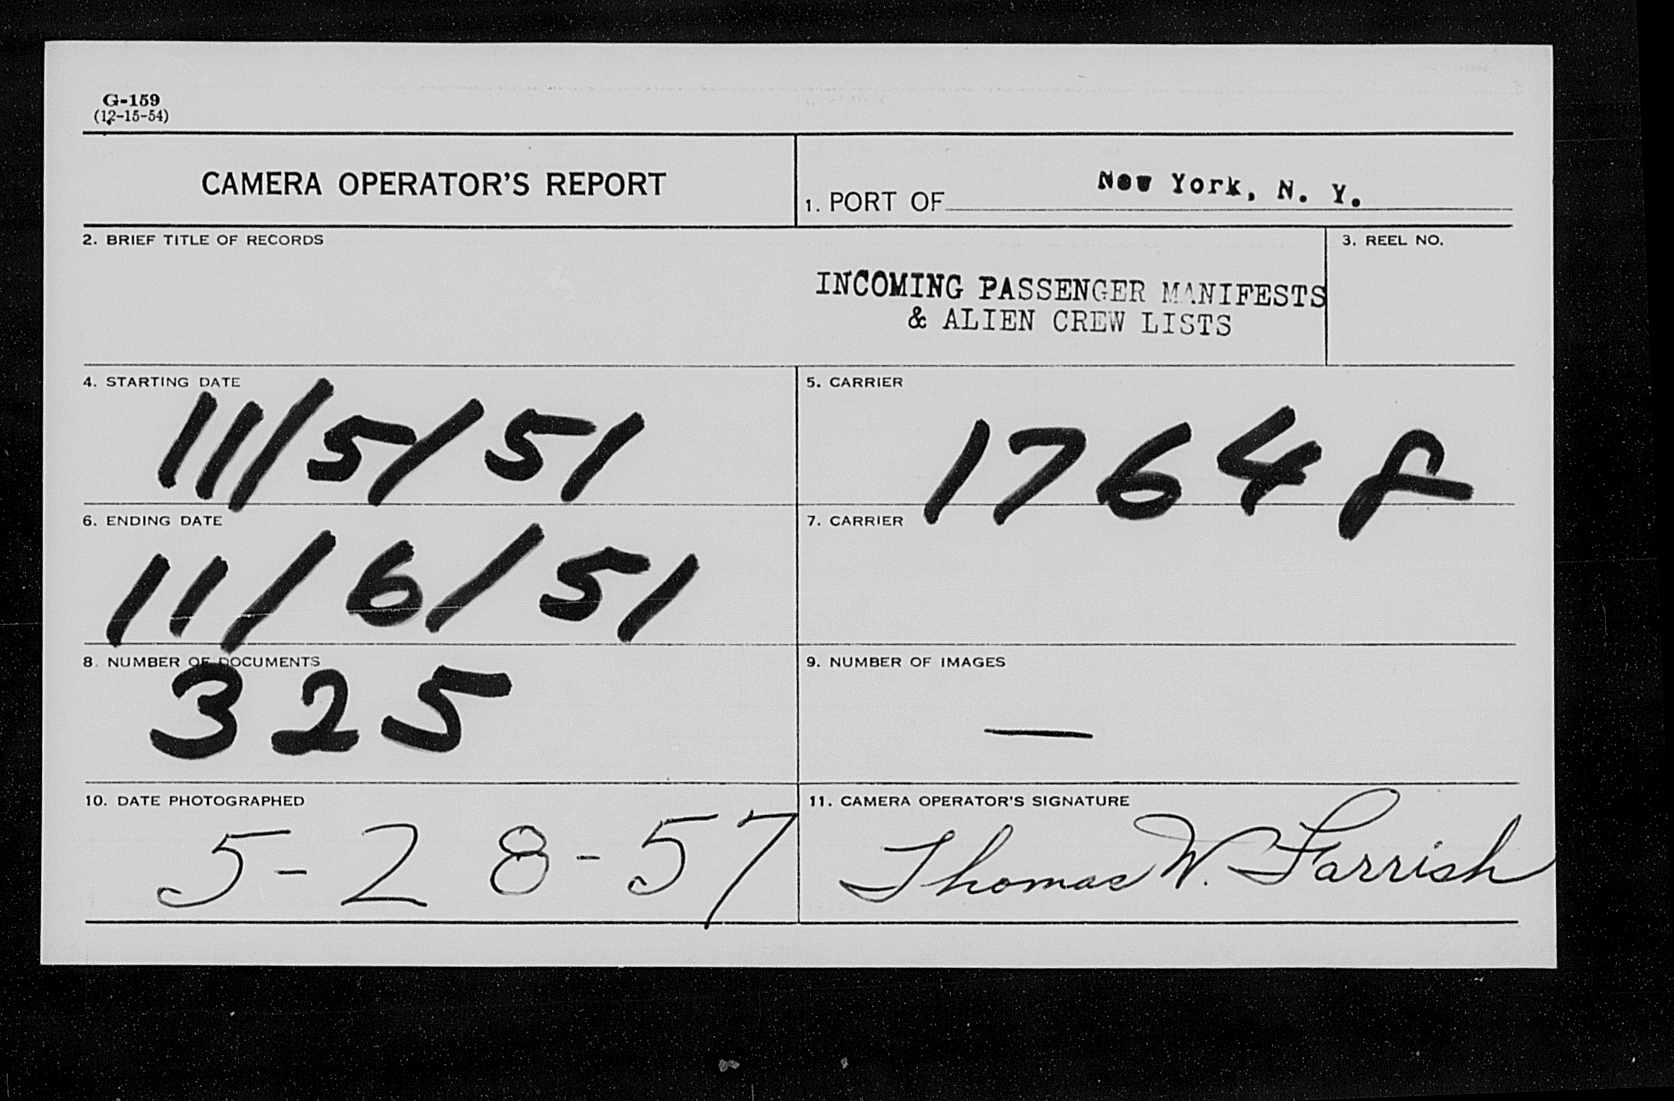 G-159
(12-15-54)
CAMERA OPERATOR'S REPORT
1. PORT OF New York, N. Y.
2. BRIEF TITLE OF RECORDS
INCOMING PASSENGER MANIFESTS
& ALIEN CREW LISTS
3. REEL NO.
4. STARTING DATE
11/5/51
5. CARRIER
1764
6. ENDING DATE
11/6/51
7. CARRIER
8. NUMBER OF DOCUMENTS
325
9. NUMBER OF IMAGES
—
10. DATE PHOTOGRAPHED
5-28-57
11. CAMERA OPERATOR'S SIGNATURE
Thomas W. Farrish